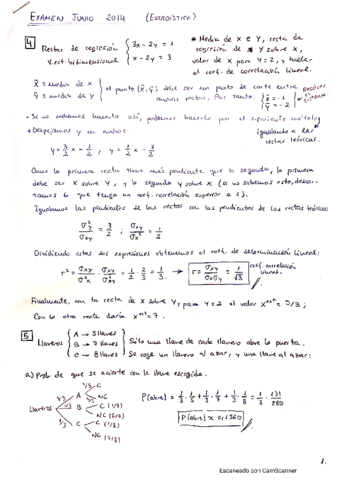 EXAMEN JUNIO 2014 (ESTADÍSTICA)
4 Rectas de regresión { 3x - 2y = 1
v.est. bidimensional { x - 2y = 3
* Media de X e Y, recta de
regresión de Y sobre X,
valor de x para Y=2, y hallar
el coef. de correlación lineal.
x̄ = Media de X
ȳ = media de Y
el punto (x̄, ȳ) debe ser un punto de corte entre
ambas rectas. Por tanto: { x̄ = -1
ȳ = -2
resolver
el sistema
Despejamos y en ambas:
igualando a las
rectas teóricas.
y = 3/2 x - 1/2 , y = x/2 - 3/2
Como la primera recta tiene más pendiente que la segunda, la primera
debe ser X sobre Y, y la segunda Y sobre X (si no sabemos esto, descar-
tamos la que tenga un coef. correlación superior a 1).
Igualamos las pendientes de las rectas con las pendientes de las rectas teóricas
σ²y/σxy = 3/2 ; σxy/σ²x = 1/2
Dividiendo estas dos expresiones obtenemos el coef. de determinación lineal:
r² = σxy/σ²x · σxy/σ²y = 1/2 · 2/3 = 1/3 → r = σxy/σxσy = 1/√3
coef. correlación
lineal.
Finalmente, con la recta de X sobre Y, para Y=2 el valor x^est = 5/3;
Con la otra recta daría x^est = 7.
5 Llaveros { A → 5 llaves
B → 7 llaves
C → 8 llaves
Sólo una llave de cada llavero abre la puerta.
Se coge un llavero al azar, y una llave al azar:
a) Prob de que se acierte con la llave escogida.
Llaveros
1/3 A 1/5 C
NC
1/3 B C (1/7)
NC (6/7)
1/3 C C (1/8)
NC (7/8)
P(abre) = 1/3 · 1/5 + 1/3 · 1/7 + 1/3 · 1/8 = 1/3 · 131/280
P(abre) ≈ 0,1560
1.
Escaneado con CamScanner